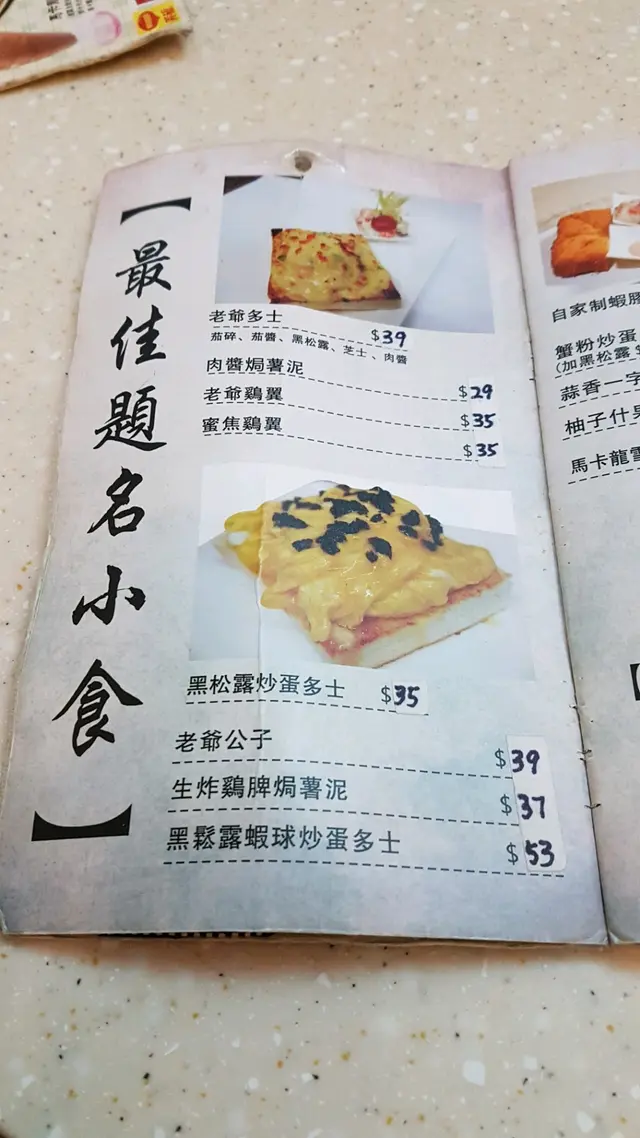 【最佳題名小食】
老爺多士 $39
茄碎、茄醬、黑松露、芝士、肉醬
肉醬焗薯泥 $29
老爺鷄翼 $35
蜜焦鷄翼 $35
黑松露炒蛋多士 $35
老爺公子 $39
生炸鷄脾焗薯泥 $37
黑鬆露蝦球炒蛋多士 $53
自家制蝦膠
蟹粉炒蛋
(加黑松露 $
蒜香一字
柚子什果
馬卡龍雪
【